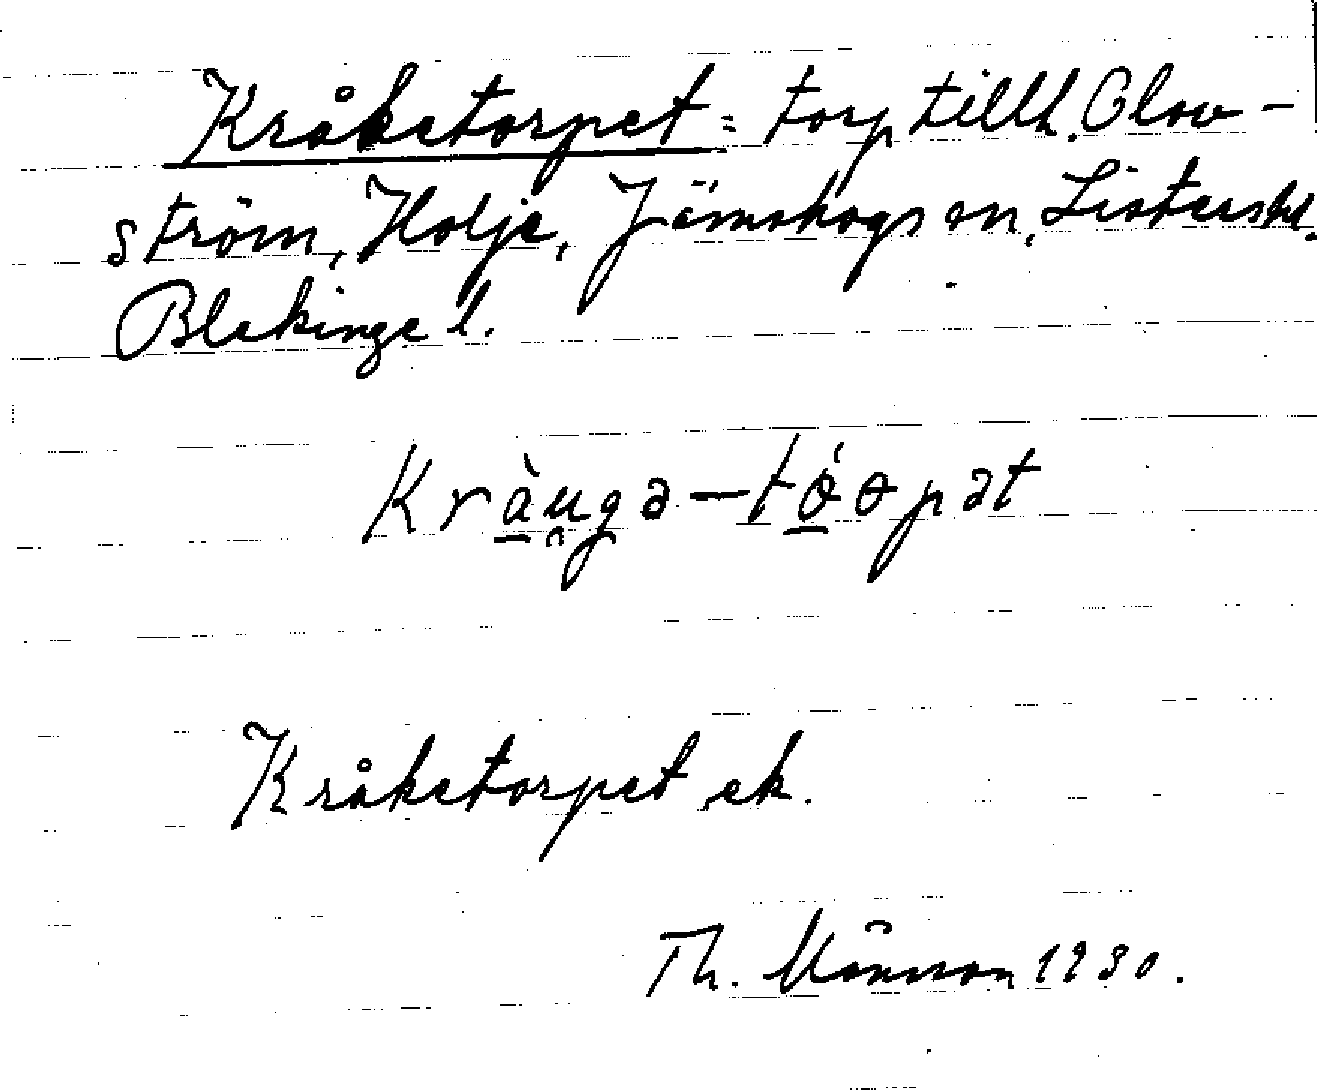 Kråketorpet = torp tillh. Olow-
ström, Holje, Jämshogs sn, Listers hd.
Blekinge l.
Kràu̯gə-tǿɵpət
Kråketorpet ek.
Th. Månsson 1930.